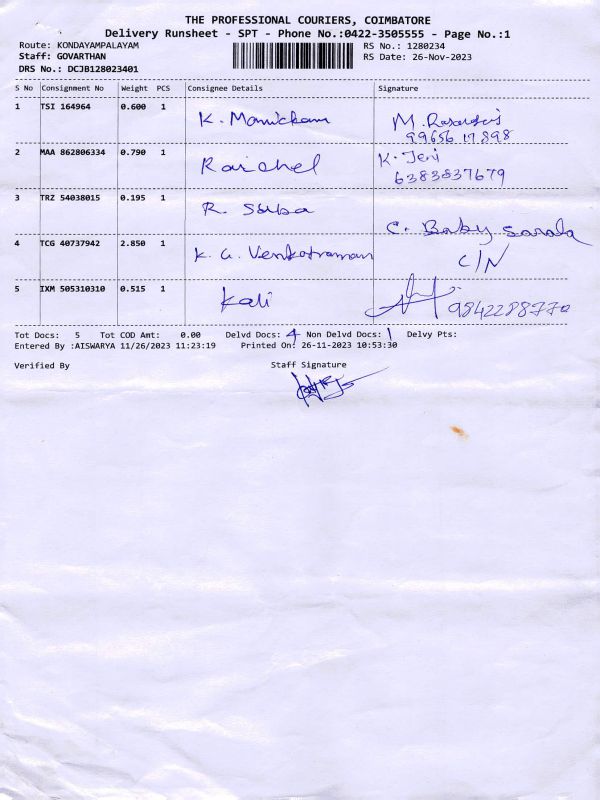 THE PROFESSIONAL COURIERS, COIMBATORE
Delivery Runsheet - SPT - Phone No.:0422-3505555 - Page No.:1
Route: KONDAYAMPALAYAM RS No.: 1280234
Staff: GOVARTHAN RS Date: 26-Nov-2023
DRS No.: DCJB128023401
S No Consignment No Weight PCS Consignee Details Signature
1 TSI 164964 0.600 1 K. Manickam M.
99656 17898
2 MAA 862806334 0.790 1 Raichel K. Jeni
6383837679
3 TRZ 54038015 0.195 1 R. Suba C. Baby Sarala
4 TCG 40737942 2.850 1 K. G. Venkatraman C/N
5 IXM 505310310 0.515 1 Kali 9842288770
Tot Docs: 5 Tot COD Amt: 0.00 Delvd Docs: 4 Non Delvd Docs: 1 Delvy Pts:
Entered By :AISWARYA 11/26/2023 11:23:19 Printed On: 26-11-2023 10:53:30
Verified By Staff Signature